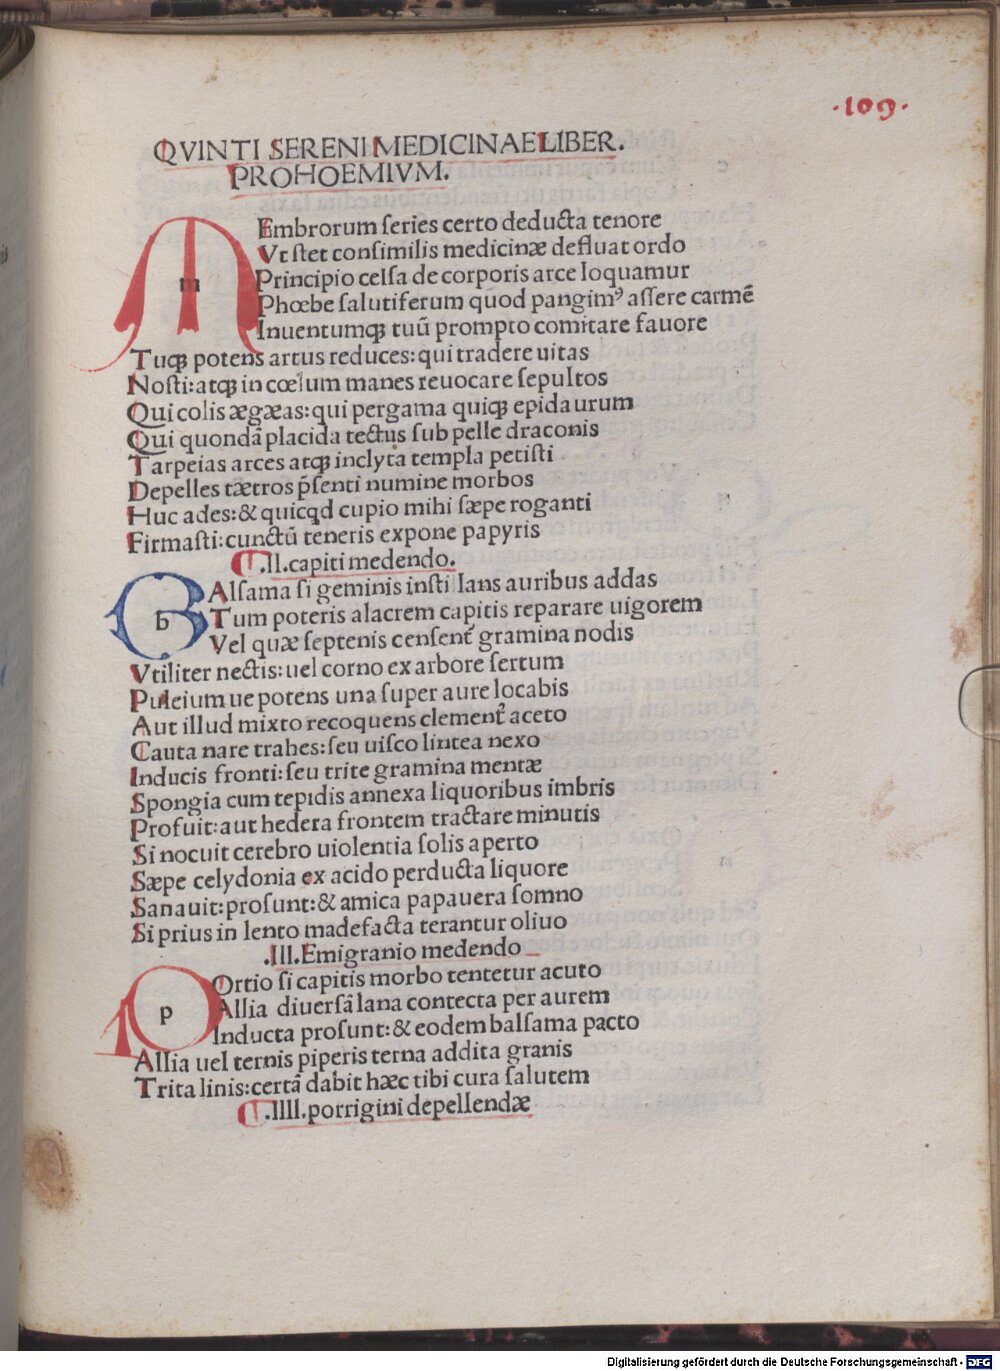 ·109·
QVINTI SERENI MEDICINAE LIBER.
PROHOEMIVM.
mEmbrorum ſeries certo deducta tenore
Vt ſtet conſimilis medicinæ defluat ordo
Principio celſa de corporis arce loquamur
Phœbe ſalutiferum quod pangimꝰ aſſere carmē
Inuentumqꝫ tuū prompto comitare fauore
Tuqꝫ potens artus reduces: qui tradere uitas
Noſti: atqꝫ in cœlum manes reuocare ſepultos
Qui colis ægæas: qui pergama quiqꝫ epidaurum
Qui quondā placida tectus ſub pelle draconis
Tarpeias arces atqꝫ inclyta templa petiſti
Depelles tætros p̄ſenti numine morbos
Huc ades: & quicqd cupio mihi ſæpe roganti
Firmaſti: cunctū teneris expone papyris
.II. capiti medendo.
bAlſama ſi geminis inſtillans auribus addas
Tum poteris alacrem capitis reparare uigorem
Vel quæ ſeptenis cenſent᷑ gramina nodis
Vtiliter nectis: uel corno ex arbore ſertum
Puleium ue potens una ſuper aure locabis
Aut illud mixto recoquens clement᷑ aceto
Cauta nare trahes: ſeu uiſco lintea nexo
Inducis fronti: ſeu trite gramina mentæ
Spongia cum tepidis annexa liquoribus imbris
Profuit: aut hedera frontem tractare minutis
Si nocuit cerebro uiolentia ſolis aperto
Sæpe celydonia ex acido perducta liquore
Sanauit: proſunt: & amica papauera ſomno
Si prius in lento madefacta terantur oliuo
.III. Emigranio medendo
pOrtio ſi capitis morbo tentetur acuto
Allia diuerſā lana contecta per aurem
Inducta proſunt: & eodem balſama pacto
Allia uel ternis piperis terna addita granis
Trita linis: certā dabit hæc tibi cura ſalutem
.IIII. porrigini depellendæ
Digitalisierung gefördert durch die Deutsche Forschungsgemeinschaft - DFG